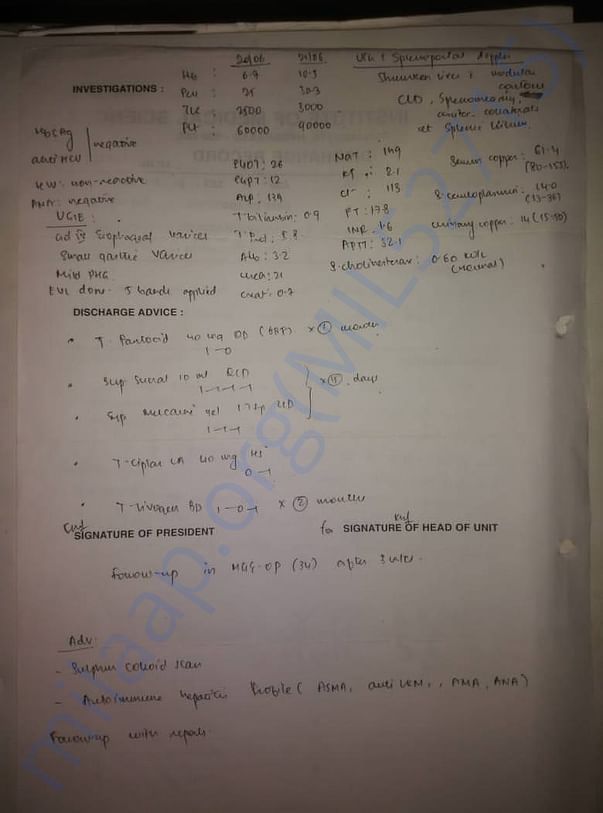 20/06 21/06 USG & Splenoportal doppler
Hb : 6.7 10.3 Shrunken liver & nodular
INVESTIGATIONS : PCV : 21 30.3
TLC : 2500 3000 CLD, Splenomegaly,
Plt : 60000 90000 collaterals
HBsAg at splenic hilum.
anti HCV negative
SGOT : 26 Na+ : 149 Serum copper : 61.4
HIV : non-reactive SGPT : 12 K+ : 2.1 (80-155)
ANA : negative ALP : 139 Cl- : 113 S. ceruloplasmin : 14.0
UGIE : T bilirubin : 0.9 PT : 17.8 (13-36)
Esophageal varices INR : 1.6 urinary copper : 14 (15-50)
Small gastric varices Alb : 3.2 APTT : 32.1
Mild PHG urea : 21 S. cholinesterase : 0.60
EVL done - 5 bands applied creat : 0.7 (Normal)
DISCHARGE ADVICE :
T. Pantocid 40 mg OD (BBF) × 1 month
1-0
Syp Sucral 10 ml QID
1-1-1-1 days
Syp Mucaine gel 1 tsp
1-1-1
T-Ciplar LA 40 mg HS
0-1
T-Livogen BD 1-0-1 × 2 months
SIGNATURE OF PRESIDENT for SIGNATURE OF HEAD OF UNIT
Follow-up in MGE-OP (34) after 3 wks.
Adv:
- Sulphur colloid scan
- Autoimmune hepatitis Profile (ASMA, anti LKM, AMA, ANA)
Follow-up with reports.